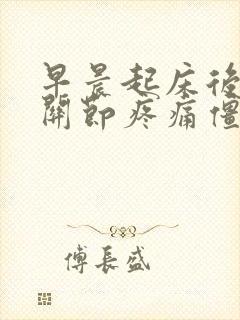 早晨起床後
關節疼痛僵
傅長盛